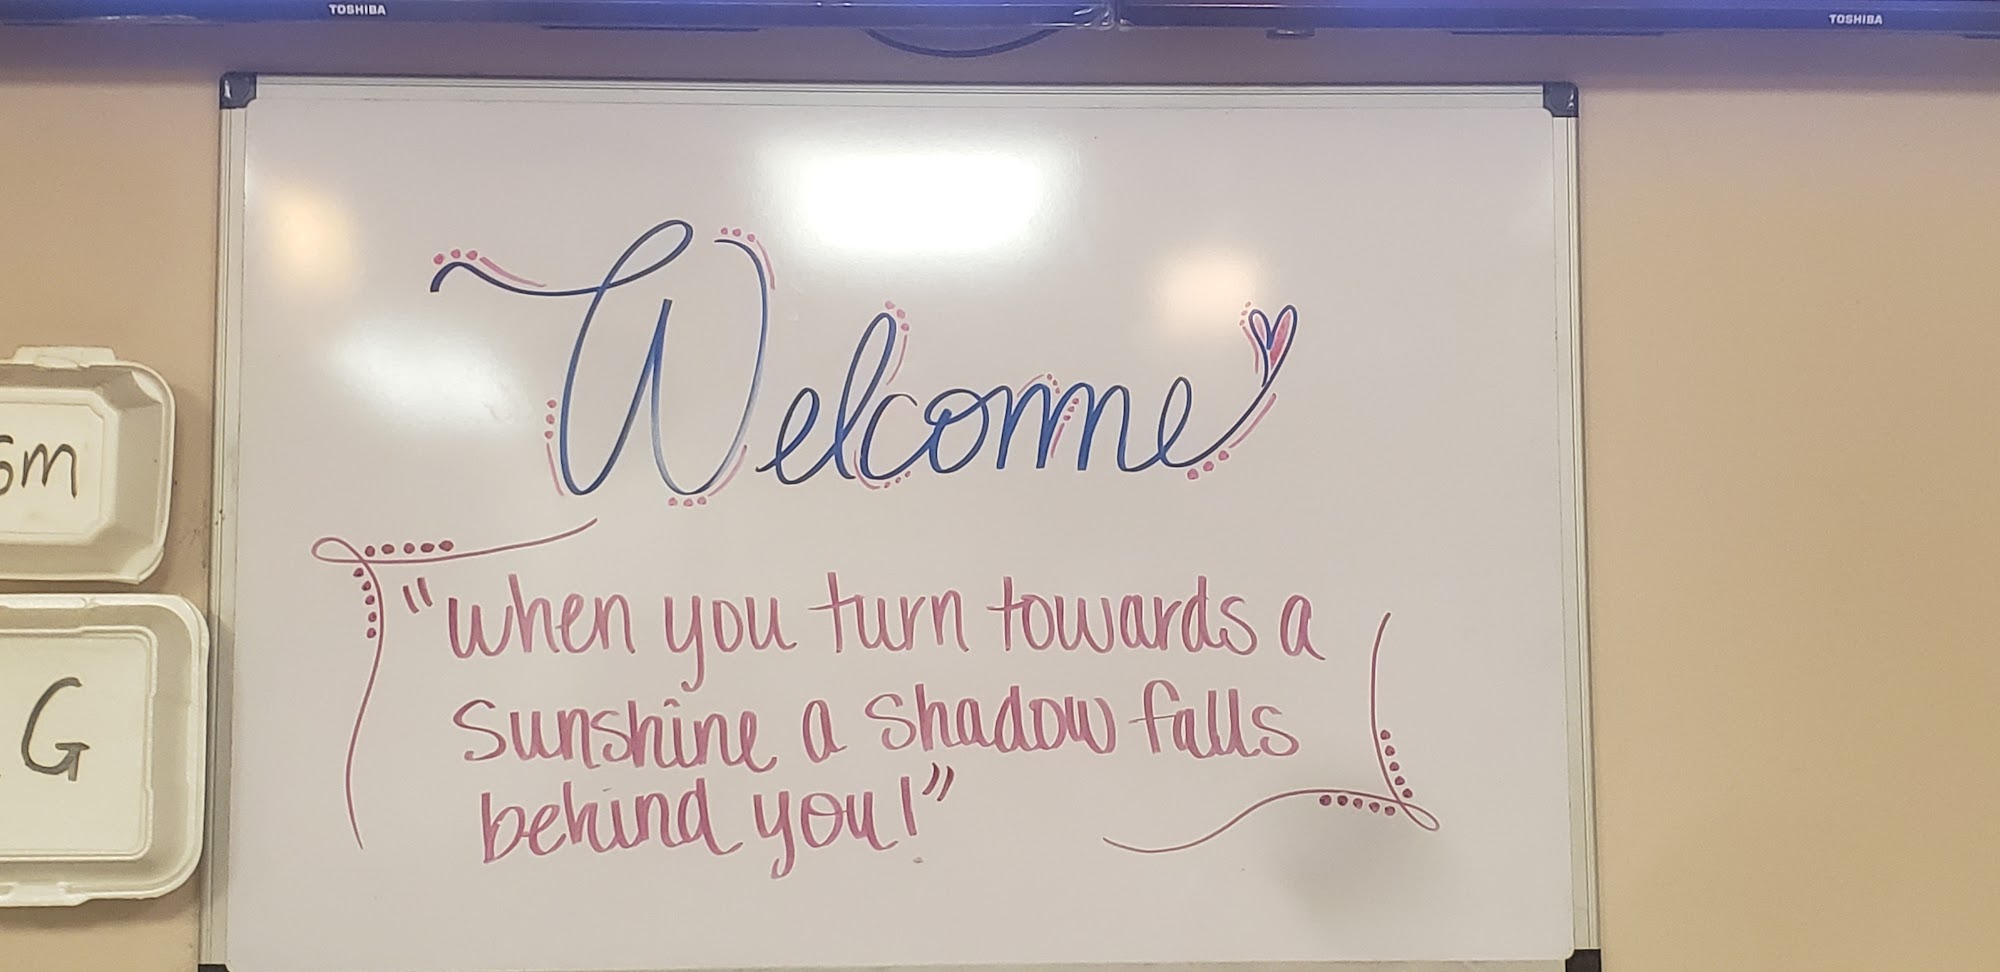 TOSHIBA
TOSHIBA
Welcome
"when you turn towards a
Sunshine a shadow falls
behind you!"
Sm
G